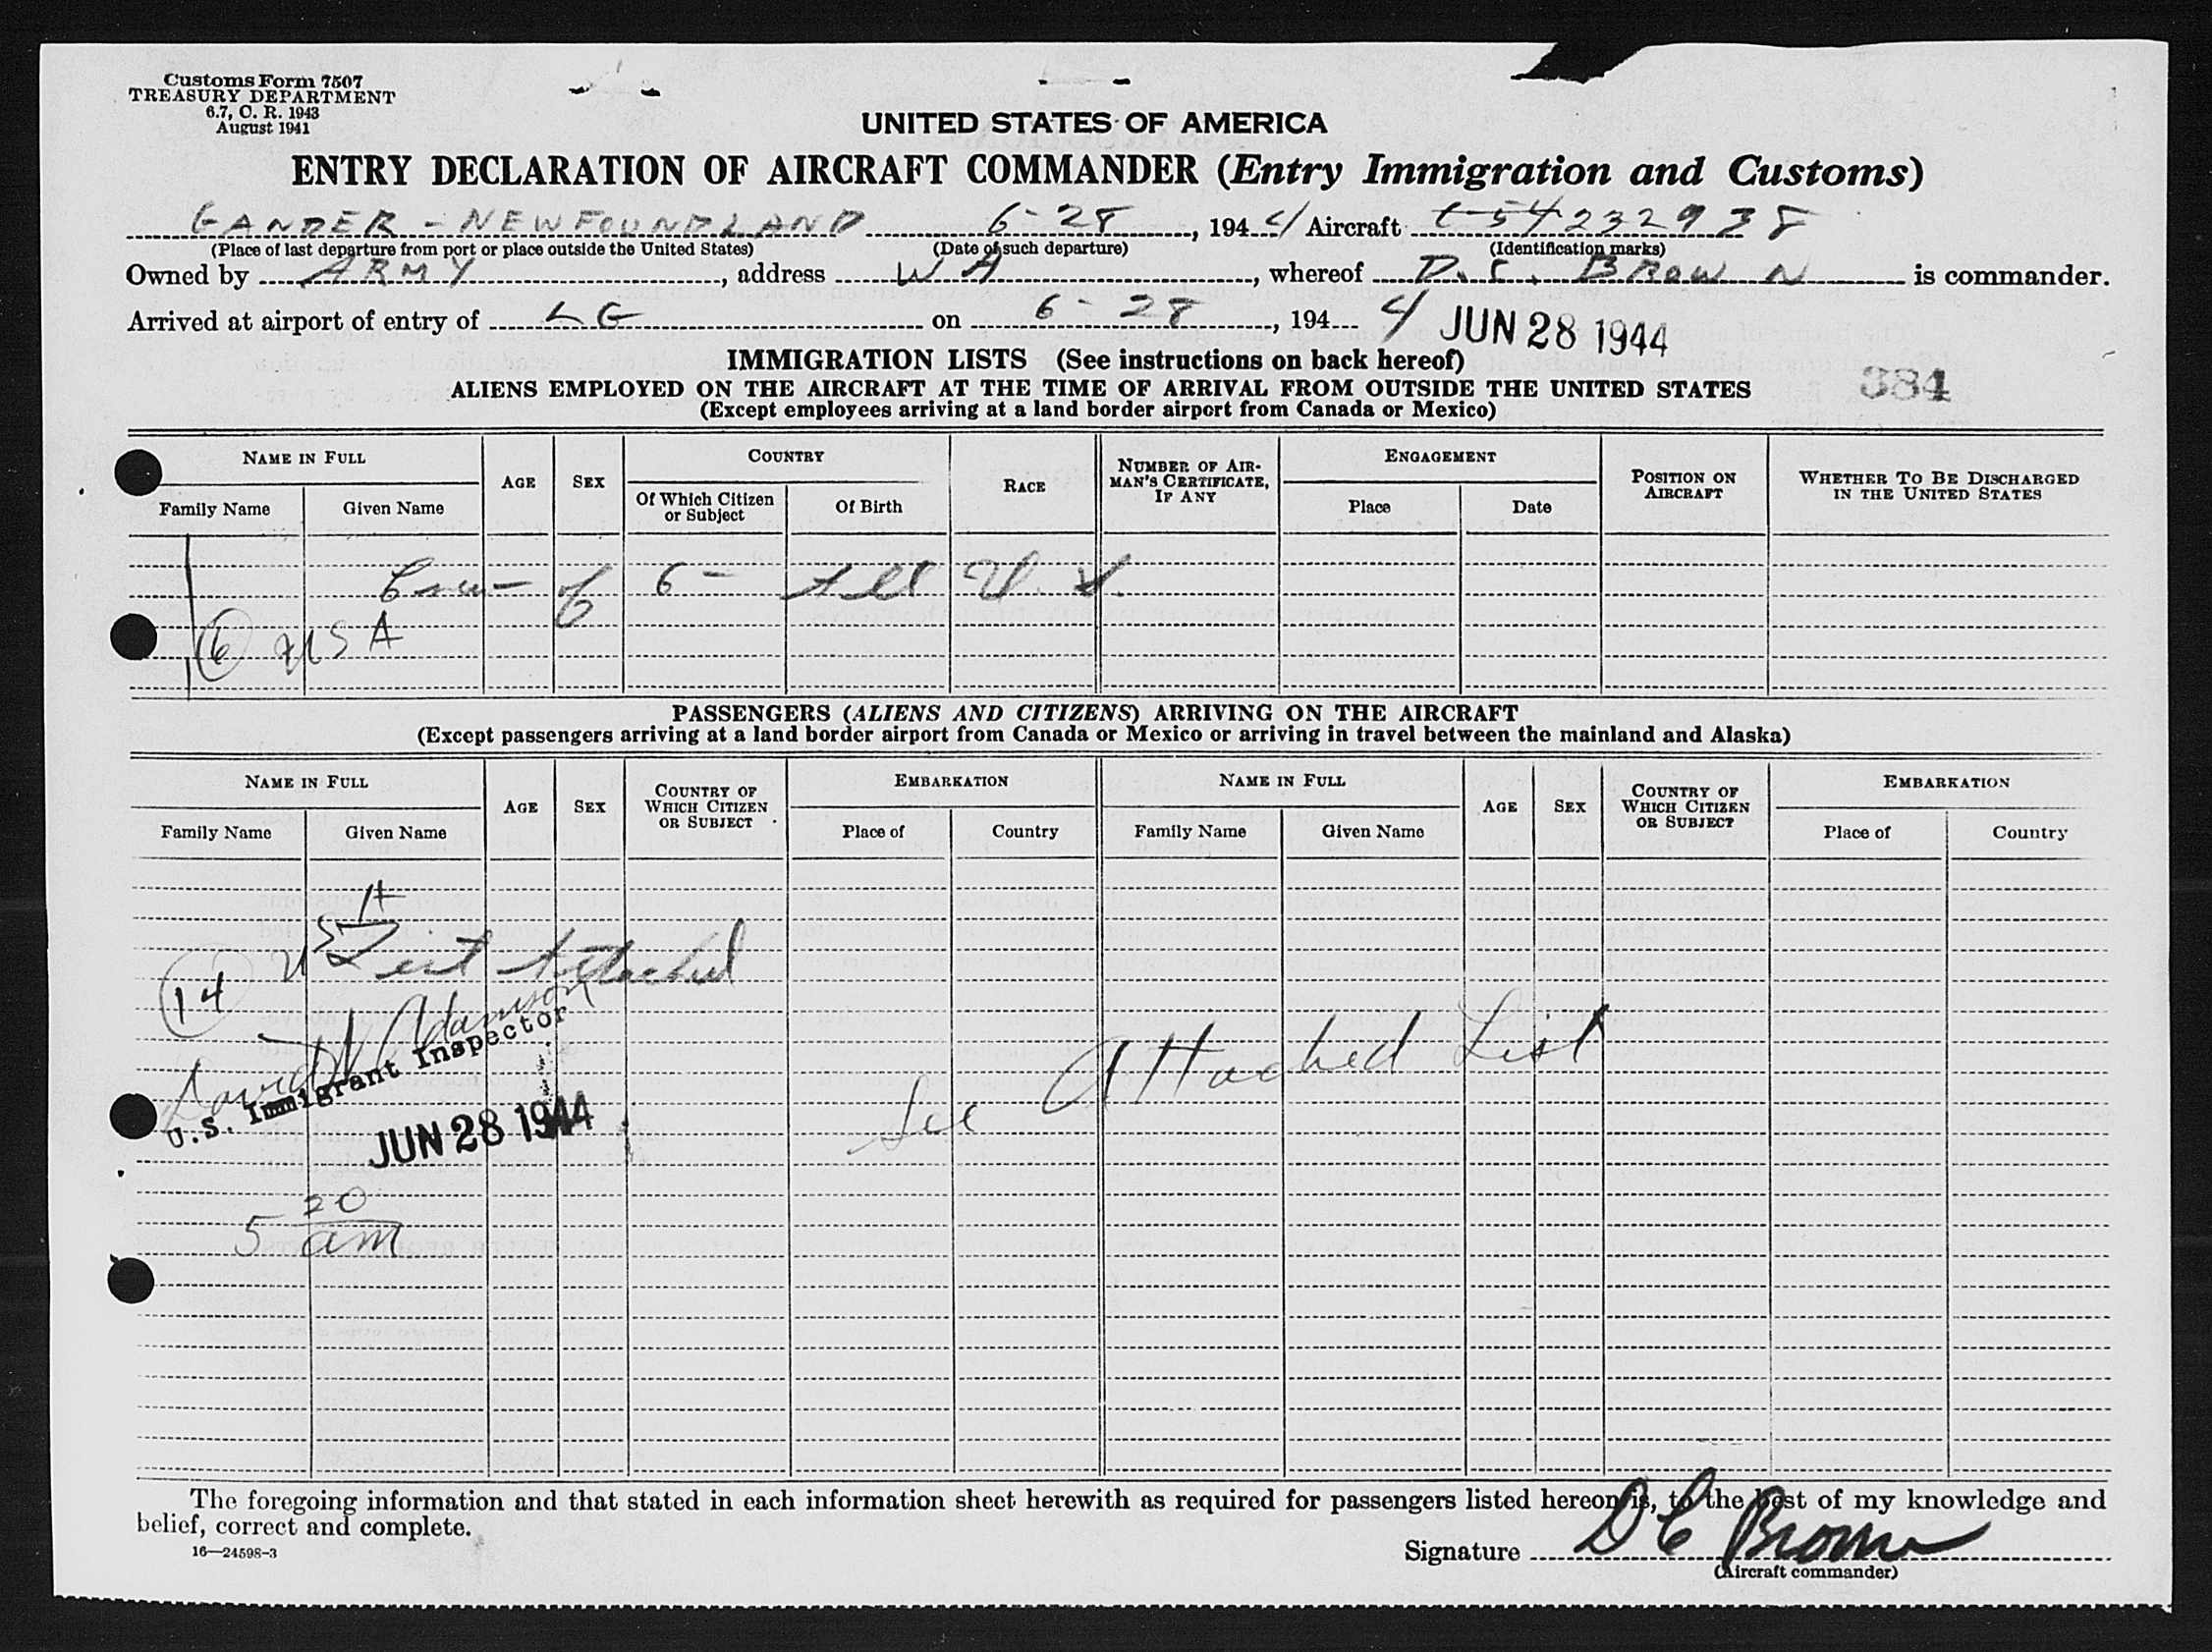 Customs Form 7507
TREASURY DEPARTMENT
6.7, C. R. 1943
August 1941
UNITED STATES OF AMERICA
ENTRY DECLARATION OF AIRCRAFT COMMANDER (Entry Immigration and Customs)
GANDER - NEWFOUNDLAND 6-28, 1944 Aircraft C-54 232938
(Place of last departure from port or place outside the United States) (Date of such departure) (Identification marks)
Owned by ARMY, address W A, whereof D. C. BROWN is commander.
Arrived at airport of entry of LG on 6-28, 194 4 JUN 28 1944
IMMIGRATION LISTS (See instructions on back hereof)
ALIENS EMPLOYED ON THE AIRCRAFT AT THE TIME OF ARRIVAL FROM OUTSIDE THE UNITED STATES 384
(Except employees arriving at a land border airport from Canada or Mexico)
NAME IN FULL AGE SEX COUNTRY RACE NUMBER OF AIR-MAN'S CERTIFICATE, IF ANY ENGAGEMENT POSITION ON AIRCRAFT WHETHER TO BE DISCHARGED IN THE UNITED STATES
Family Name Given Name Of Which Citizen or Subject Of Birth Place Date
Crew - of 6 - All U.S.
6 USA
PASSENGERS (ALIENS AND CITIZENS) ARRIVING ON THE AIRCRAFT
(Except passengers arriving at a land border airport from Canada or Mexico or arriving in travel between the mainland and Alaska)
NAME IN FULL AGE SEX COUNTRY OF WHICH CITIZEN OR SUBJECT EMBARKATION NAME IN FULL AGE SEX COUNTRY OF WHICH CITIZEN OR SUBJECT EMBARKATION
Family Name Given Name Place of Country Family Name Given Name Place of Country
List Attached
14
David H Adamson
U.S. Immigrant Inspector
See Attached List
JUN 28 1944
5 20 am
The foregoing information and that stated in each information sheet herewith as required for passengers listed hereon is, to the best of my knowledge and
belief, correct and complete.
16—24598-3
Signature D C Brown
(Aircraft commander)